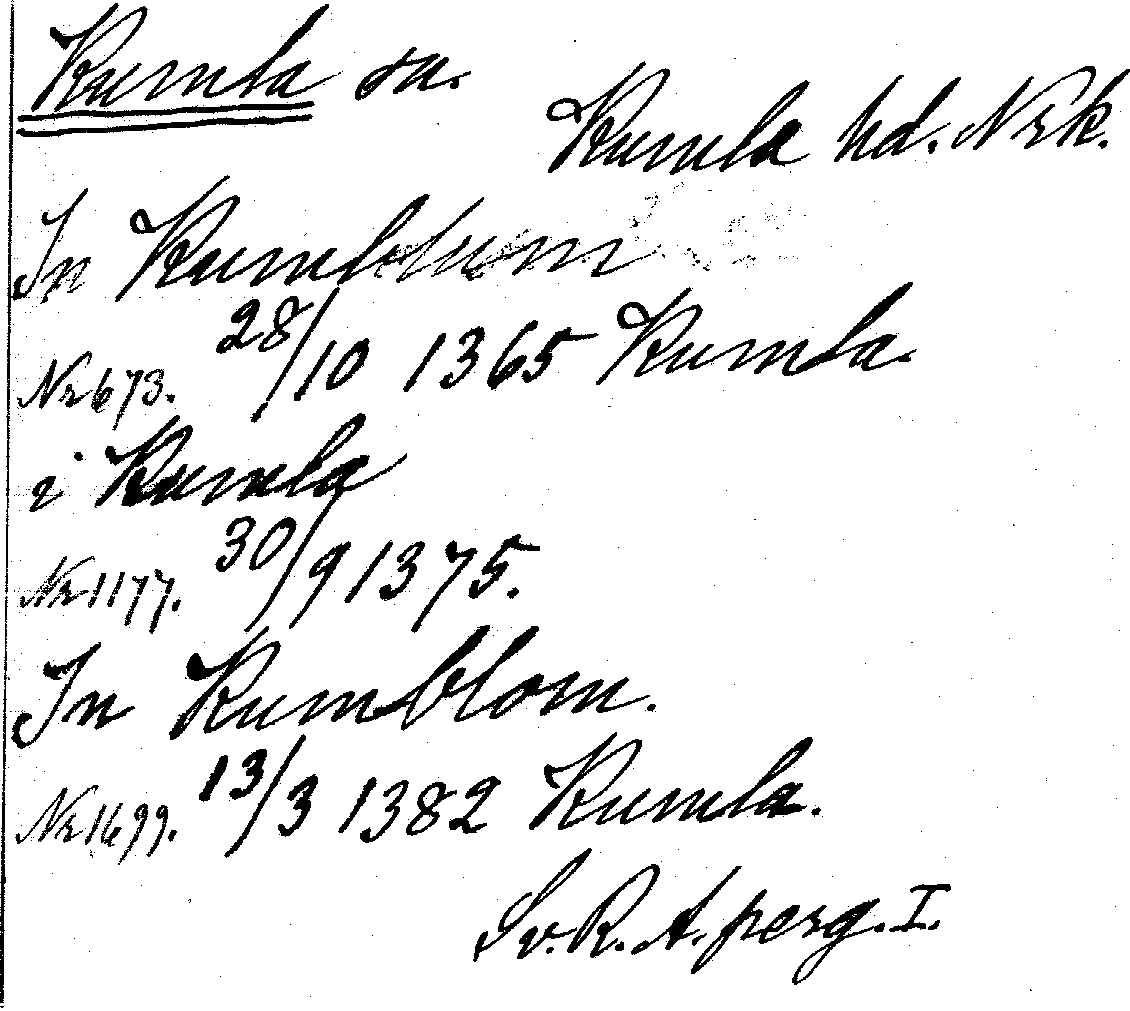 Kumla sn.
Kumla hd. Nrk.
In Kumblum
Nr 673. 28/10 1365 Kumla.
i Kumla
Nr 1177. 30/9 1375.
In Kumblom.
Nr 1699. 13/3 1382 Kumla.
Sv. R. A. perg. I.